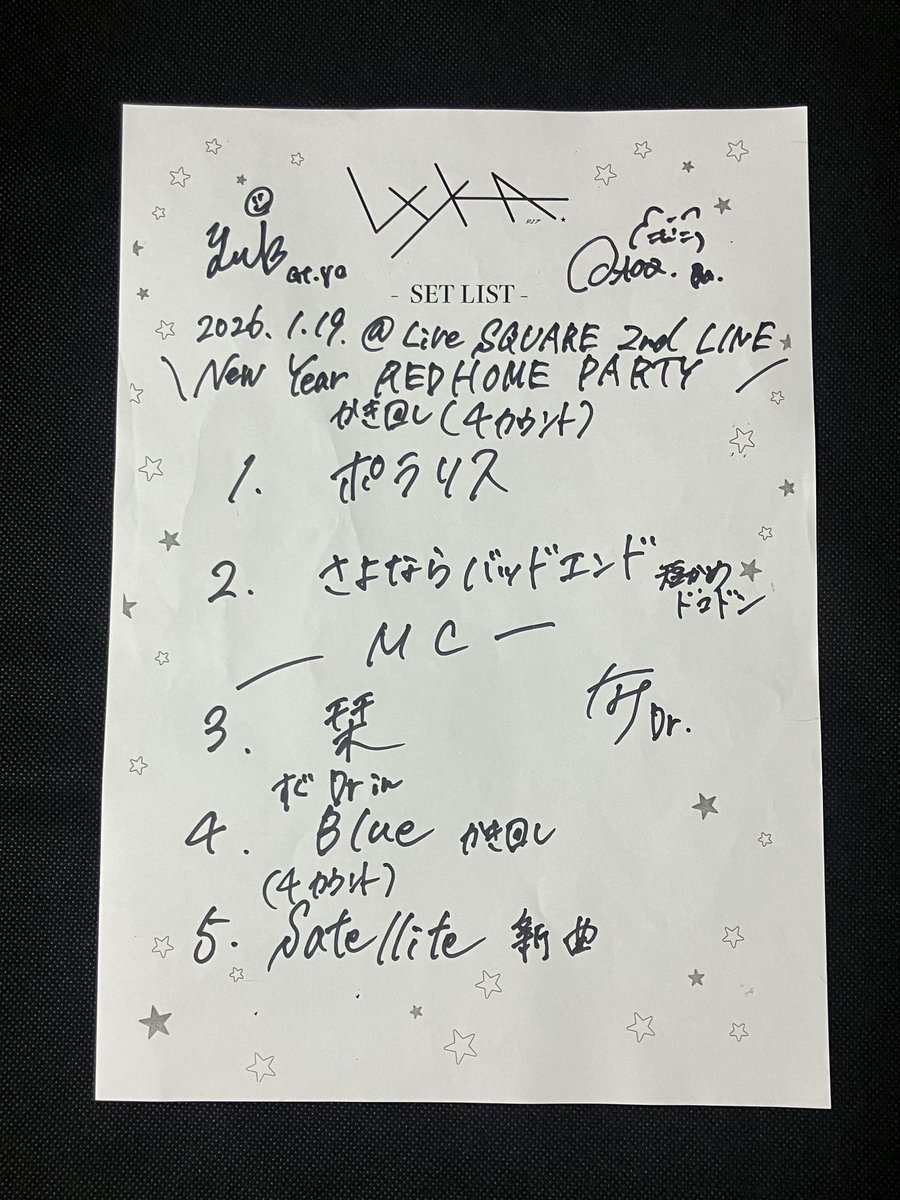 LYXA
YuB
Gt.Vo
Ba.
- SET LIST -
2026.1.19. @ Live SQUARE 2nd LINE
\ New Year REDHOME PARTY /
かき回し(4カウント)
1. ポラリス
2. さよならバッドエンド 短かめ
ドコドン
— MC —
3. 栞
Dr.
すぐ Dr in
4. Blue かき回し
(4カウント)
5. Satellite 新曲